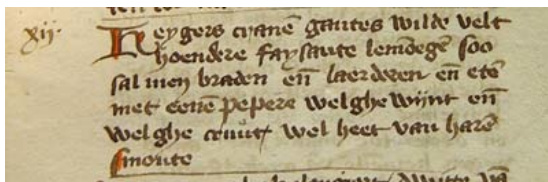 xij. Reygers cranē gantes wilde velt
hoendere faysante lemoegē soo
sal men braden eñ laerderen eñ etē
met eenē pepere wel ghewijnt eñ
wel ghe cruut wel heet van harē
smoute